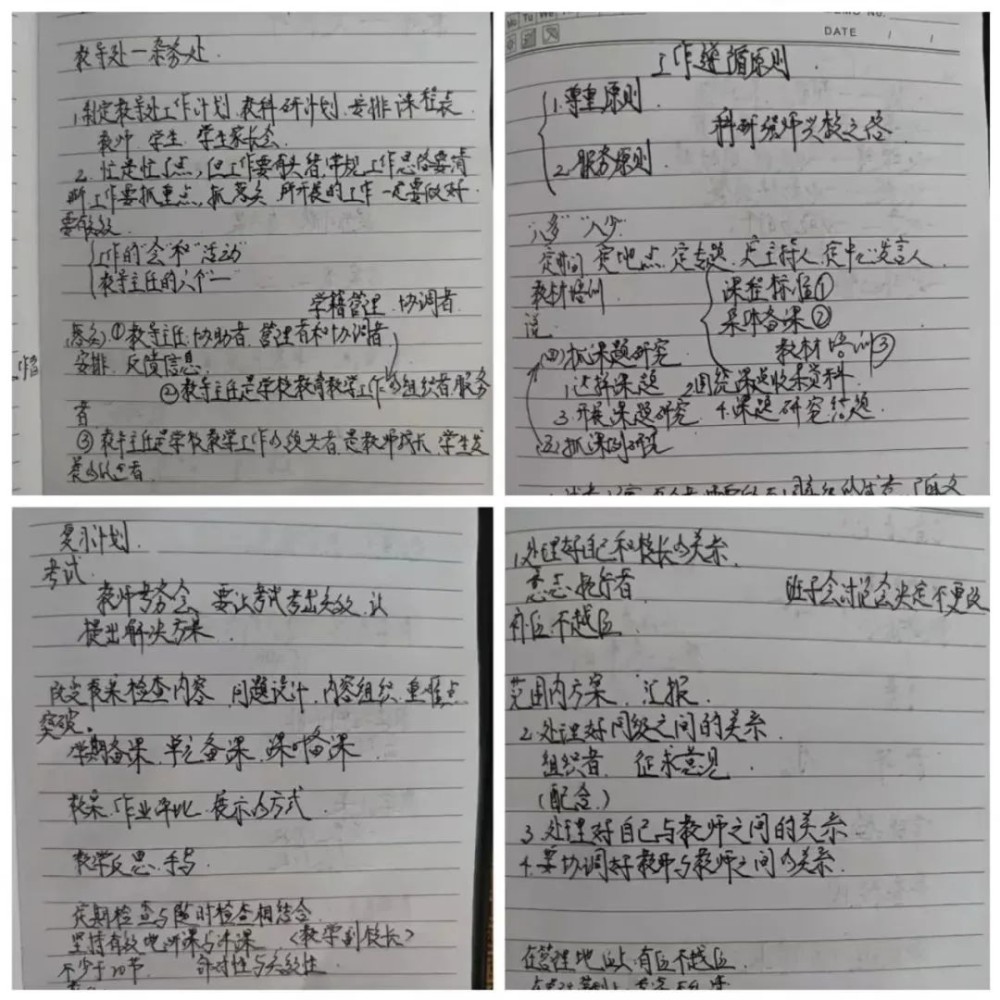 教导处—杂务处
1.制定教导处工作计划.教科研计划.安排课程表.
教师 学生 学生家长会
2.忙是忙了点,但工作要有头绪,常规工作思路要清
晰工作要抓重点,抓落实 所开展的工作一定要做好
要有效
工作的"会"和"活动"
教导主任的六个"一"
学籍管理 协调者
①教导主任.协助者.管理者和协调者.
安排.反馈信息.
②教导主任是学校教育教学工作的组织者.服务
者
③教导主任是学校教学工作的领头者.是教师成长.学生发
展的
DATE / /
工作遵循原则.
1.尊重原则
科研兴教之路
2.服务原则
"多""少"
定时间 定地点.定专题.定主持人.定中心发言人
教材培训
课程标准①
集体备课②
教材培训③
(四)抓课题研究
1.选择课题 2.围绕课题收集资料.
3.开展课题研究 4.课题研究结题.
复习计划.
考试
教师考务会 要让考试考出实效.认
提出解决方案.
改变教案检查内容 问题设计.内容组织.重难点
突破。
学期备课.单元备课.课时备课
教案.作业评比.展示的方式.
教学反思.手写.
定期检查与随时检查相结合
坚持有效地听课与评课 <教学副校长>
不少于20节. 针对性与实效性.
1.处理好自己和校长的关系.
意志执行者 班子会讨论会决定不更改
有位不越位
范围内方案.汇报.
2.处理好同级之间的关系.
组织者.征求意见.
(配合)
3.处理好自己与教师之间的关系
4.要协调好教师与教师之间的关系.
在管理地位上有位不越位.